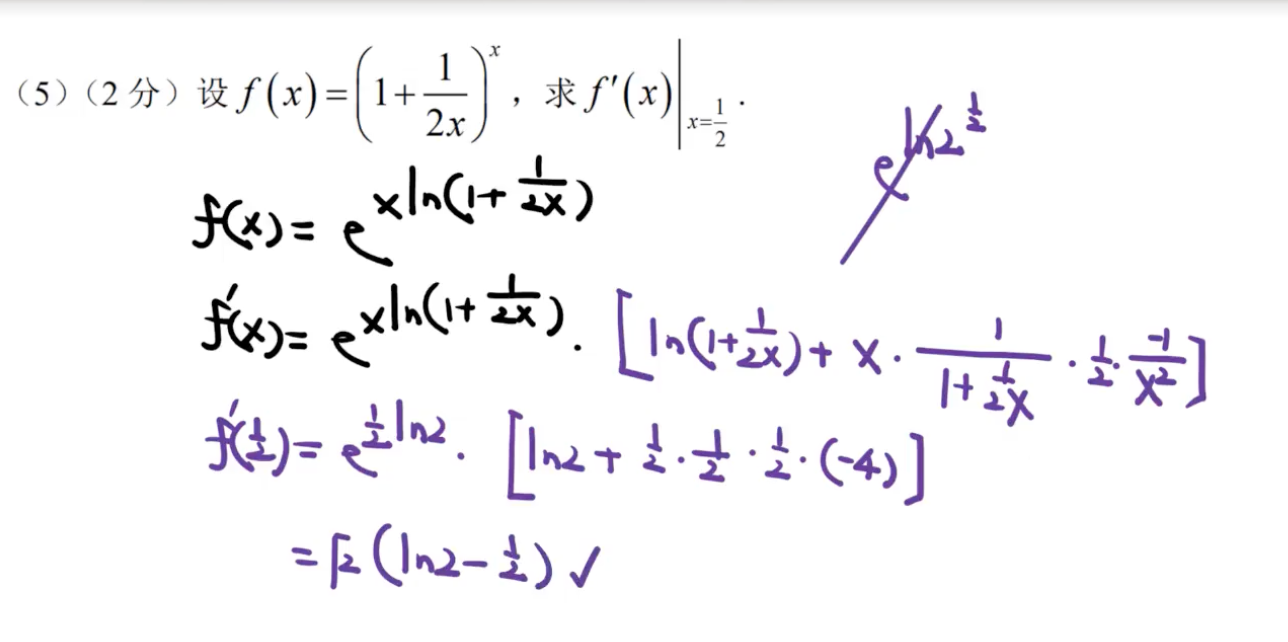 (5)(2分)设 f(x)=(1+1/(2x))^x,求 f′(x)|_{x=1/2}.
e^{ln2^{1/2}}
f(x)=e^{xln(1+1/(2x))}
f′(x)=e^{xln(1+1/(2x))}·[ln(1+1/(2x))+x·1/(1+1/(2x))·1/2·(-1)/(x^2)]
f′(1/2)=e^{1/2 ln2}·[ln2+1/2·1/2·1/2·(-4)]
=√2(ln2-1/2)✓